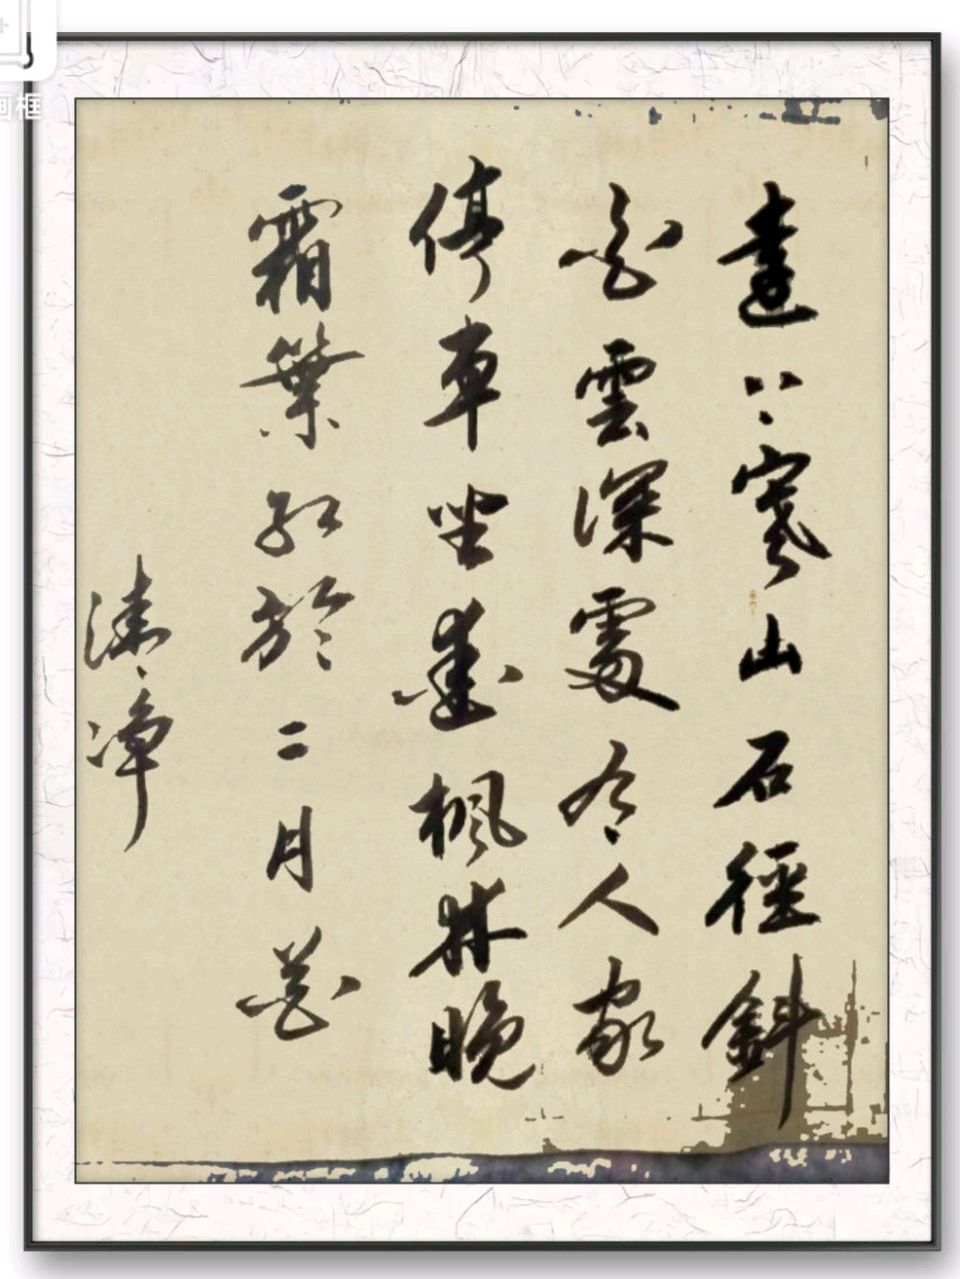 遠上寒山石徑斜
白雲深處有人家
停車坐愛楓林晚
霜葉紅於二月花
画框